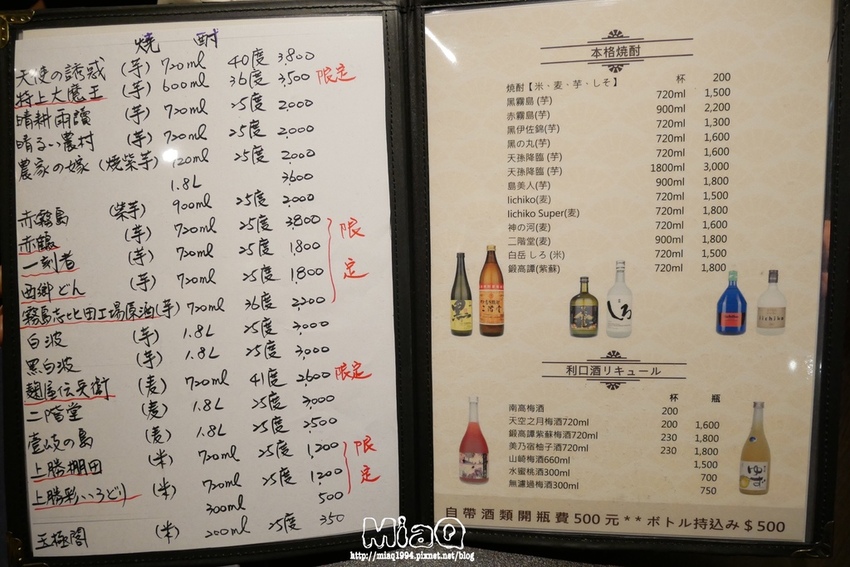 燒 酎
天使の誘惑 (芋) 720ml 40度 3,800
特上大魔王 (芋) 600ml 36度 3,500 限定
晴耕雨讀 (芋) 720ml 25度 2,000
晴るい農村 (芋) 720ml 25度 2,000
農家の嫁 (燒柴芋) 720ml 25度 2,000
1.8L 3,600
赤霧島 (柴芋) 900ml 25度 2,000
赤鶴 (芋) 720ml 25度 3,800
一刻者 (芋) 720ml 25度 1,800
西郷どん (芋) 720ml 25度 1,800
限定
霧島志比田工場原酒(芋) 720ml 36度 2,200
白波 (芋) 1.8L 25度 3,000
黒白波 (芋) 1.8L 25度 3,000
麹屋伝兵衛 (麦) 720ml 41度 2,600 限定
二階堂 (麦) 1.8L 25度 3,000
壹岐の島 (麦) 1.8L 25度 2,500
上勝棚田 (米) 720ml 25度 1,200
上勝彩いろどり (米) 720ml 25度 1,200
限定
300ml 500
玉極閣 (米) 200ml 25度 350
本格焼酎
杯 200
焼酎【米、麦、芋、しそ】
黒霧島(芋) 720ml 1,500
赤霧島(芋) 900ml 2,200
黒伊佐錦(芋) 720ml 1,300
黒の丸(芋) 720ml 1,600
天孫降臨 (芋) 720ml 1,600
天孫降臨 (芋) 1800ml 3,000
島美人(芋) 900ml 1,800
Iichiko(麦) 720ml 1,500
Iichiko Super(麦) 720ml 1,800
神の河(麦) 720ml 1,600
二階堂(麦) 900ml 1,800
白岳 しろ (米) 720ml 1,500
鍛高譚(紫蘇) 720ml 1,800
利口酒リキュール
杯 瓶
南高梅酒 200
天空之月梅酒720ml 200 1,600
鍛高譚紫蘇梅酒720ml 230 1,800
美乃宿柚子酒720ml 230 1,800
山崎梅酒660ml 1,500
水蜜桃酒300ml 700
無濾過梅酒300ml 750
自帶酒類開瓶費500元**ボトル持込み$500
MiaQ
http://miaq1994.pixnet.net/blog